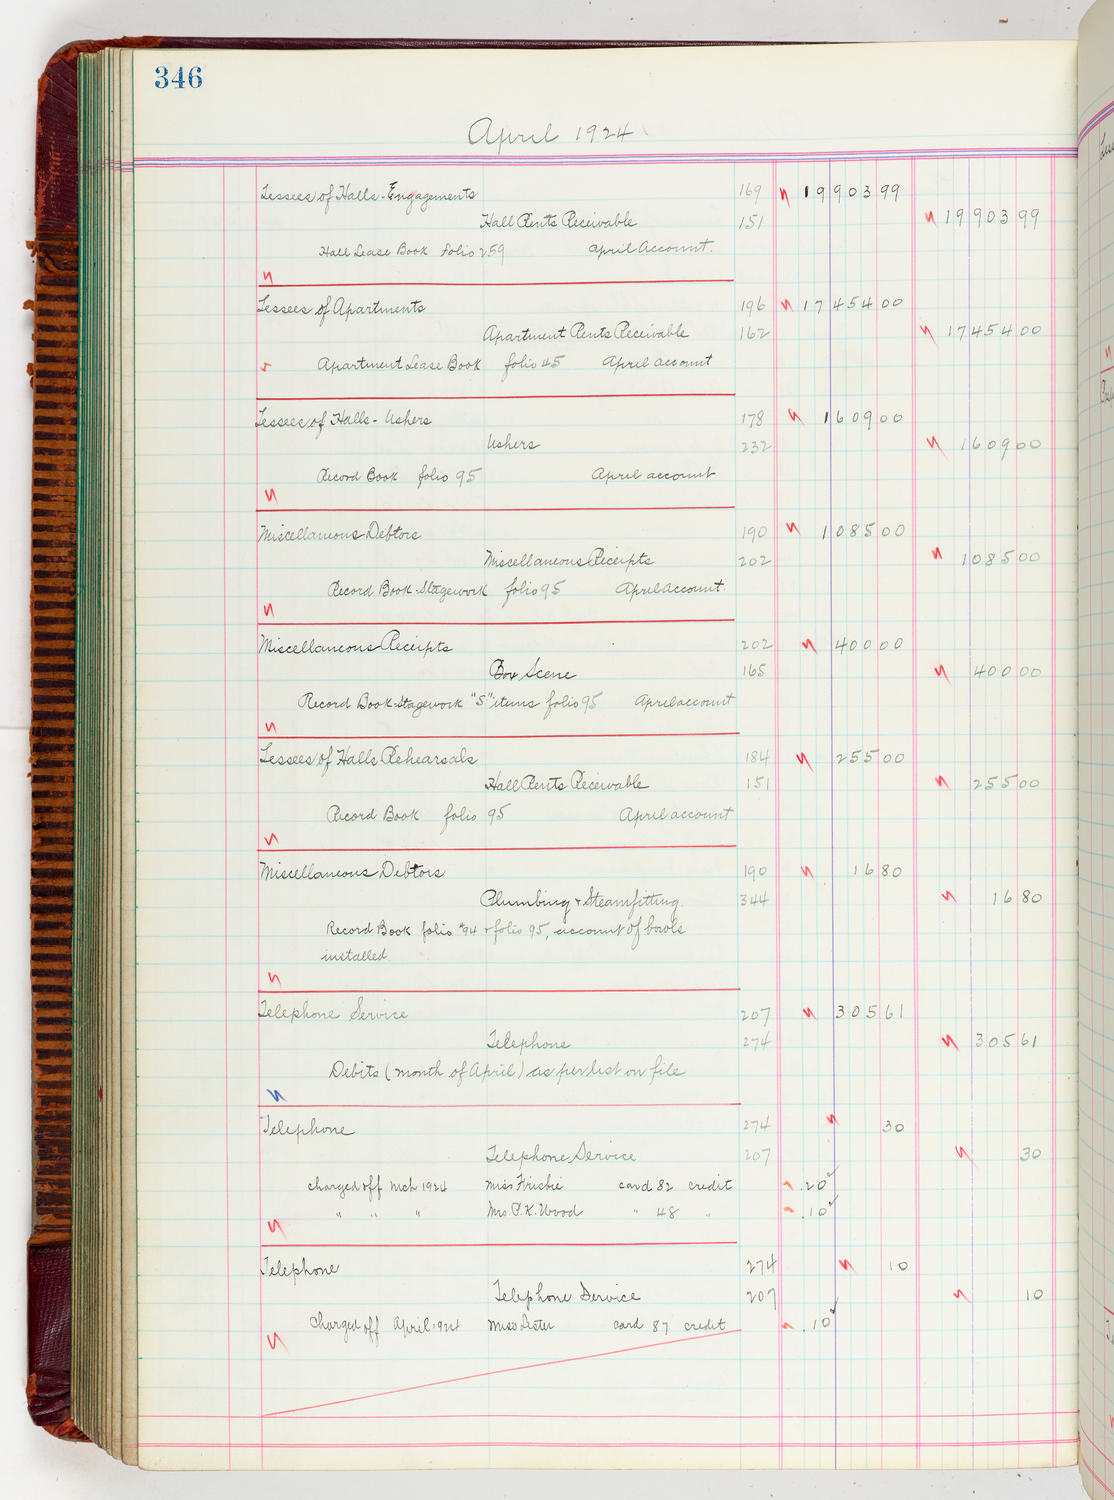 346
April 1924
Lessees of Halls - Engagements 169 19903 99
Hall Rents Receivable 151 19903 99
Hall Lease Book folio 259 April Account.
Lessees of Apartments 196 17454 00
Apartment Rents Receivable 162 17454 00
Apartment Lease Book folio 45 April account
Lessees of Halls - Ushers 178 1609 00
Ushers 232 1609 00
Record Book folio 95 April account
Miscellaneous Debtors 190 1085 00
Miscellaneous Receipts 202 1085 00
Record Book - Stagework folio 95 April account.
Miscellaneous Receipts 202 400 00
Box Scene 165 400 00
Record Book - Stagework "S" items folio 95 April account
Lessees of Halls Rehearsals 184 255 00
Hall Rents Receivable 151 255 00
Record Book folio 95 April account
Miscellaneous Debtors 190 16 80
Plumbing & Steamfitting 344 16 80
Record Book folio #94 & folio 95, account of bowls
installed
Telephone Service 207 305 61
Telephone 274 305 61
Debits (month of April) as per list on file
Telephone 274 30
Telephone Service 207 30
charged off Mch 1924 Miss Frisbie card 82 credit .20
" " " Mrs. P. K. Wood " 48 " .10
Telephone 274 10
Telephone Service 207 10
Charged off April 1924 Miss Lister card 87 credit .10